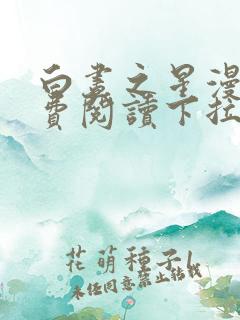 白晝之星漫
費閱讀下拉
花萌種子l
未经同意禁止转载